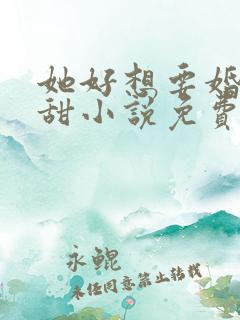 她好想要婚
甜小说免费
永鲲
未经同意禁止转载